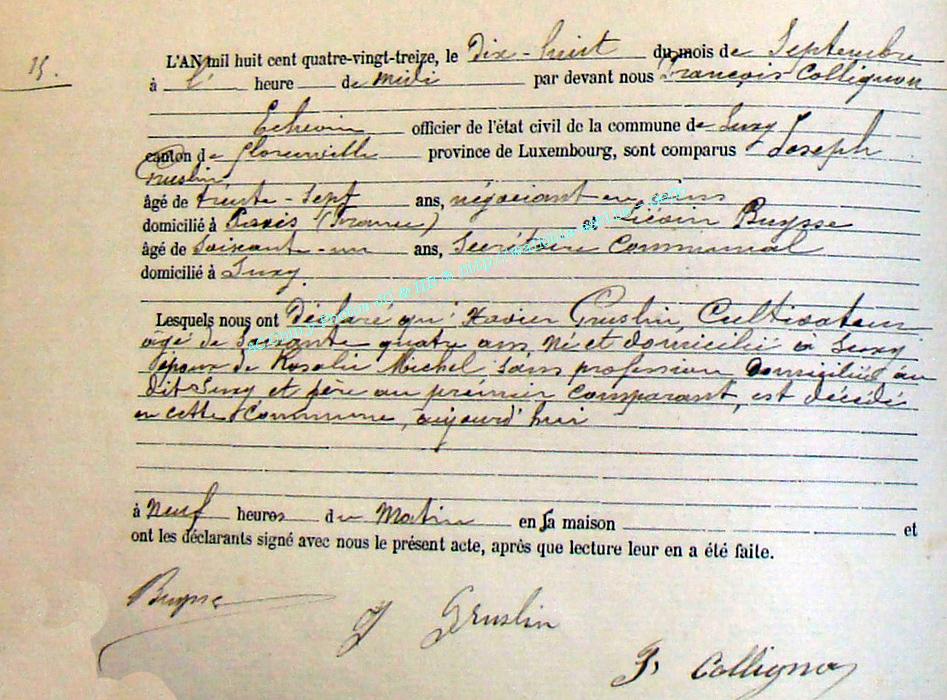 15.
L'AN mil huit cent quatre-vingt-treize, le dix-huit du mois de Septembre
à l' heure de midi par devant nous François Collignon
Echevin officier de l'état civil de la commune de Suxy
canton de Florenville province de Luxembourg, sont comparus Joseph
Gruslin
âgé de trente-sept ans, négociant en vins
domicilié à Paris (France) et Buysse
âgé de Soixante-un ans, Secrétaire Communal
domicilié à Suxy.
Lesquels nous ont déclaré qu'Xavier Gruslin, Cultivateur
âgé de Soixante quatre ans, né et domicilié à Suxy
époux de Rosalie Michel sans profession domiciliée au
dit Suxy et père au premier Comparant, est décédé
en cette Commune, aujourd'hui
à Neuf heures du Matin en sa maison et
ont les déclarants signé avec nous le présent acte, après que lecture leur en a été faite.
Buysse
J Gruslin
F. Collignon